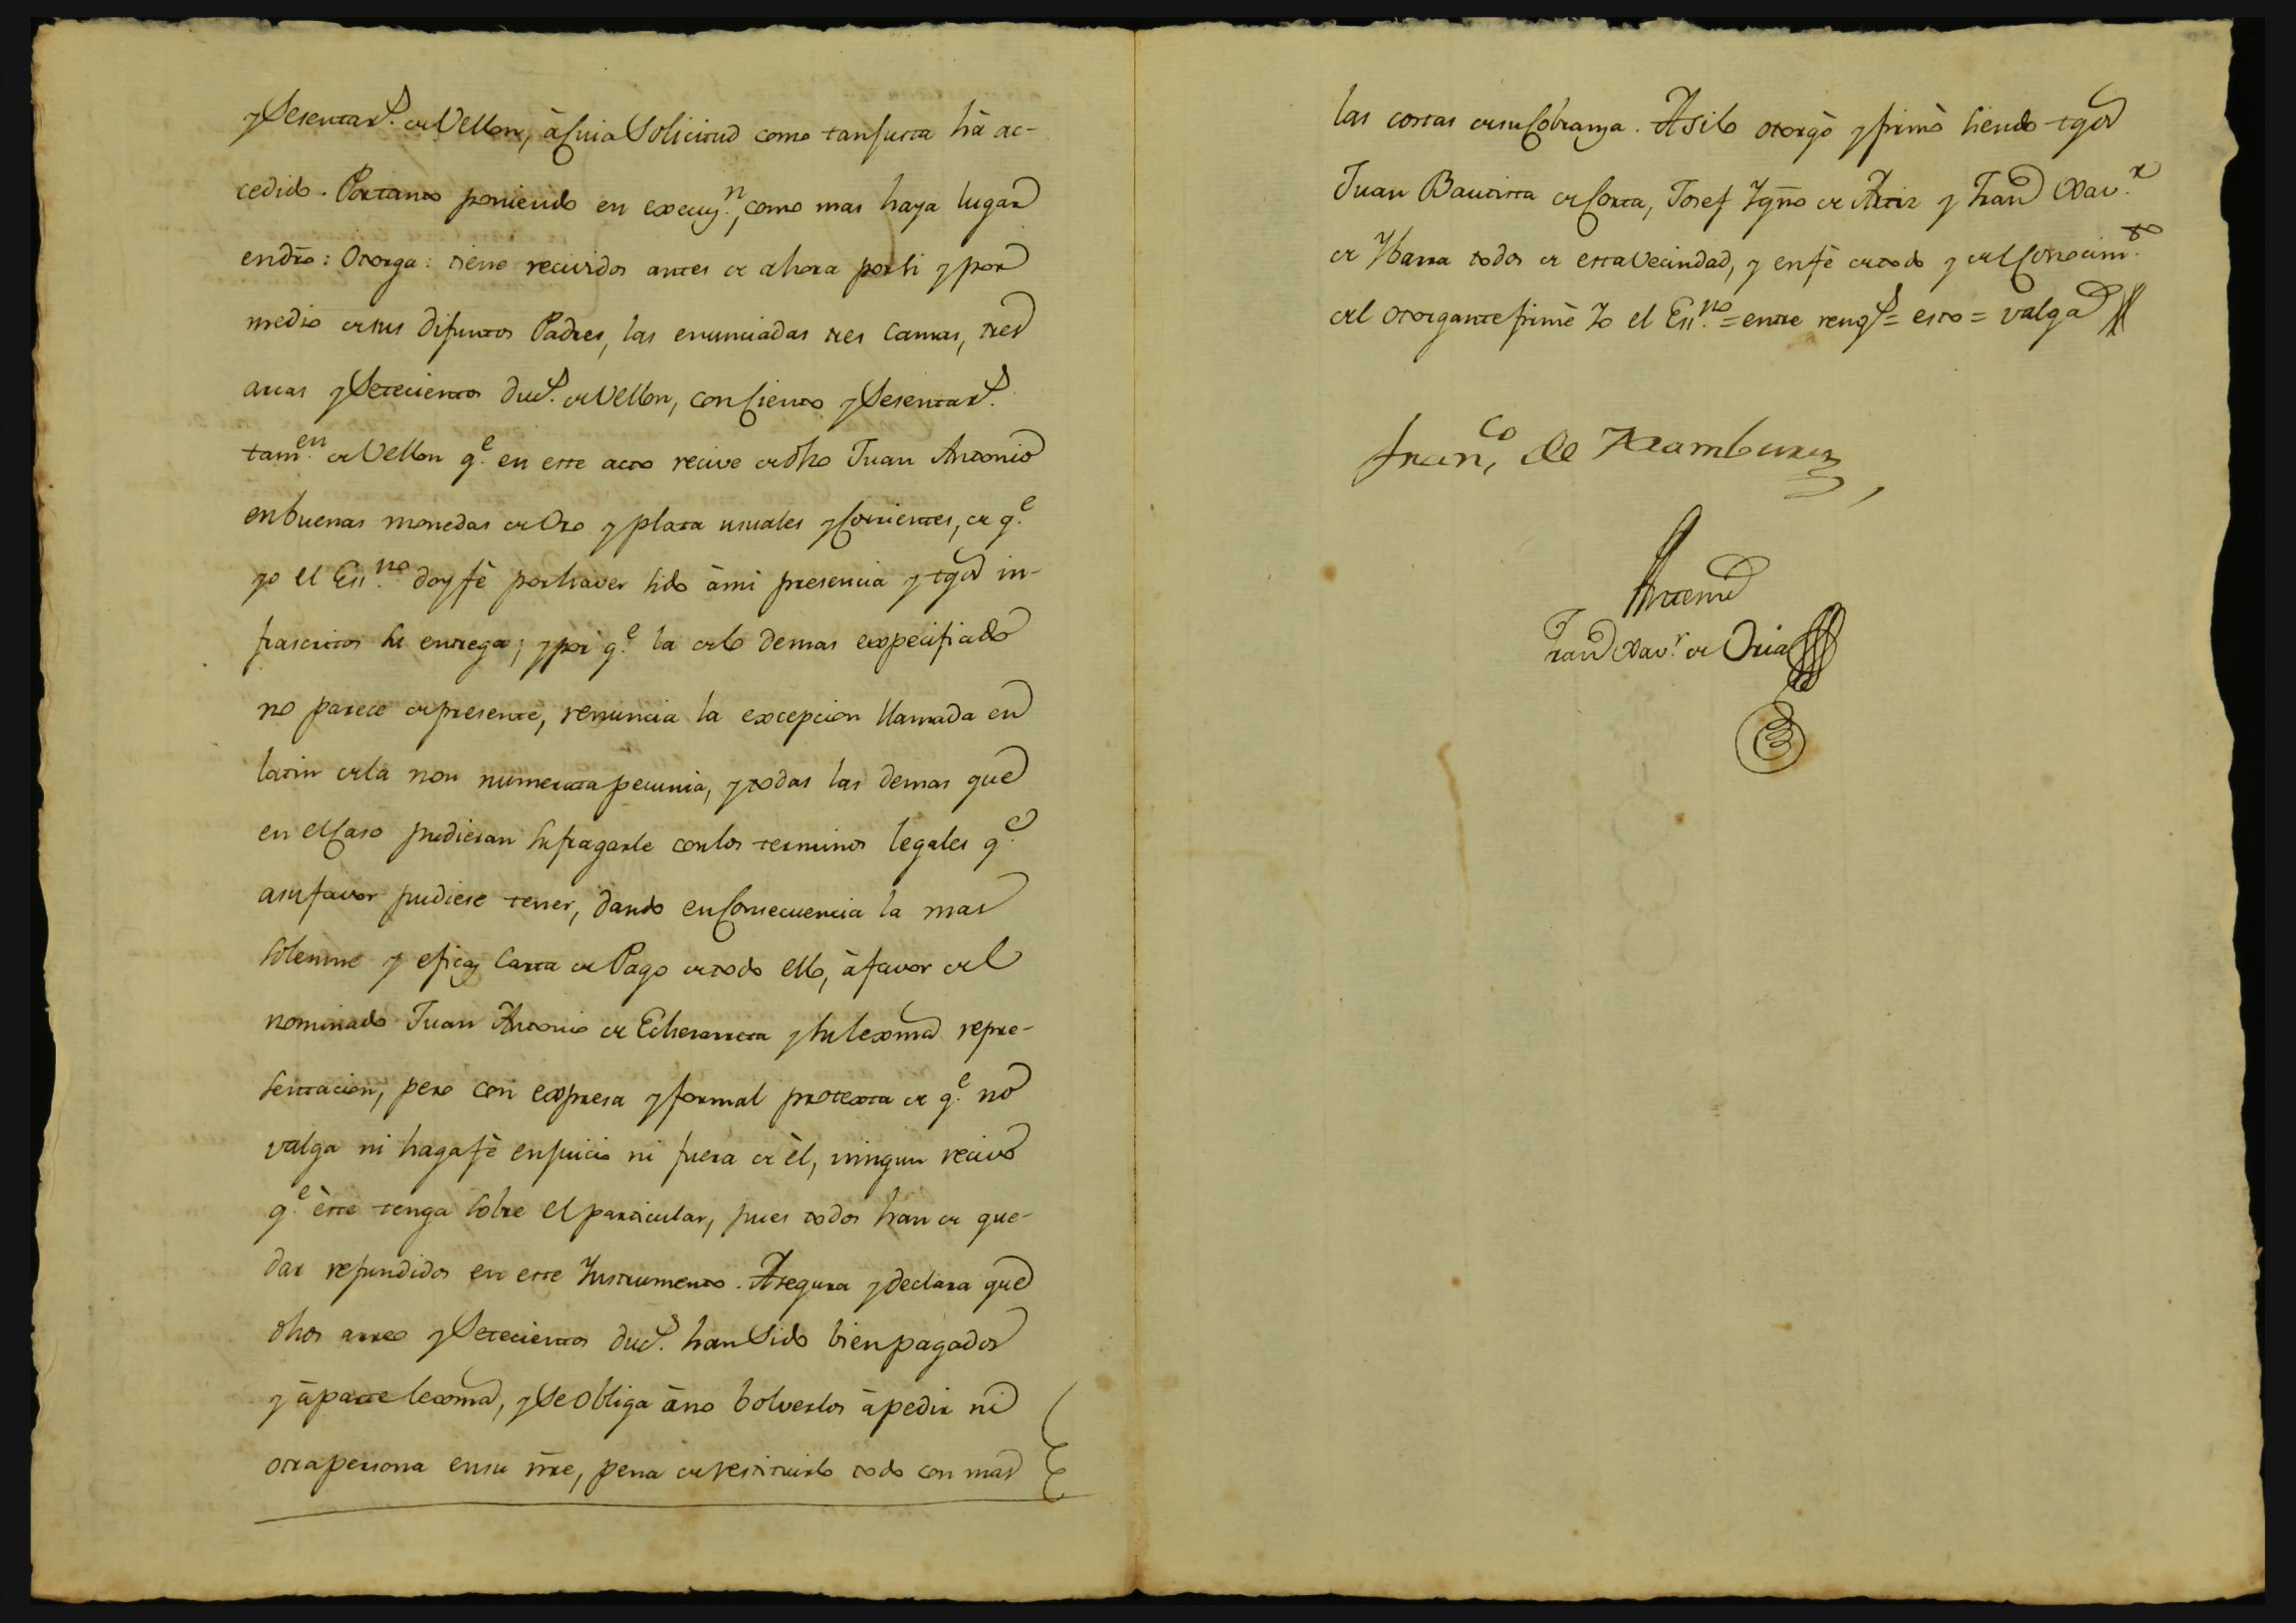 y Sesenta r.s de Vellon, à Cuia Solicitud como tan justa hà ac-
cedido. Portanto poniendo en execuz.n, como mas haya lugar
en dro: Otorga: tiene recividos antes de ahora por si y por
medio de sus difuntos Padres, las enunciadas tres camas, tres
arcas y Setecientos duc.s de Vellon, con Ciento y Sesenta r.s
tam.en de Vellon q.e en este acto recive de dho Juan Antonio
en buenas monedas de Oro y plata usuales y Corrientes, de q.e
yo el Ess.no doy fè por haver sido à mi presencia y tgos in-
frascritos su entrega; y por q.e la de lo demas expecificado
no parece de presente, renuncia la excepcion llamada en
latin de la non numerata pecunia, y todas las demas que
en el Caso pudieran sufragarle con los terminos legales q.e
a su favor pudiese tener, dando en Consecuencia la mas
solemne y eficaz Carta de Pago de todo ello, à favor del
nominado Juan Antonio de Echevarreta y su lexma repre-
sentacion, pero con expresa y formal protexta de q.e no
valga ni haga fè en juicio ni fuera de èl, ningun recivo
q.e èste tenga sobre el particular, pues todos han de que-
dar refundidos en este Instrumento. Asegura y declara que
dhos arreo y Setecientos duc.s han Sido bien pagados
y à parte lexma, y Se Obliga à no bolverlos à pedir ni
otra persona en su nre, pena de restituirlo todo con mas
las costas de su Cobranza. Asi lo otorgò y firmò siendo tgos
Juan Bautista de Corta, Josef Ygno de Artiz y Fran.co Xav.r
de Ybarra todos de esta Vecindad, y en fè de todo y del Conocim.to
del otorgante firmè Yo el Ess.no = entre reng.s = esto = valga
Fran.co de Aramburu
Ante mi
Fran.co Xav.r de Oria